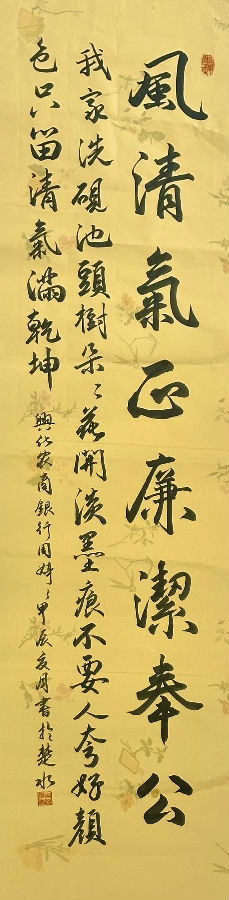 風清氣正廉潔奉公
我家洗硯池頭樹朵々花開淡墨痕不要人夸好顏
色只留清氣滿乾坤
興化农商銀行同
甲辰夏月書於楚水